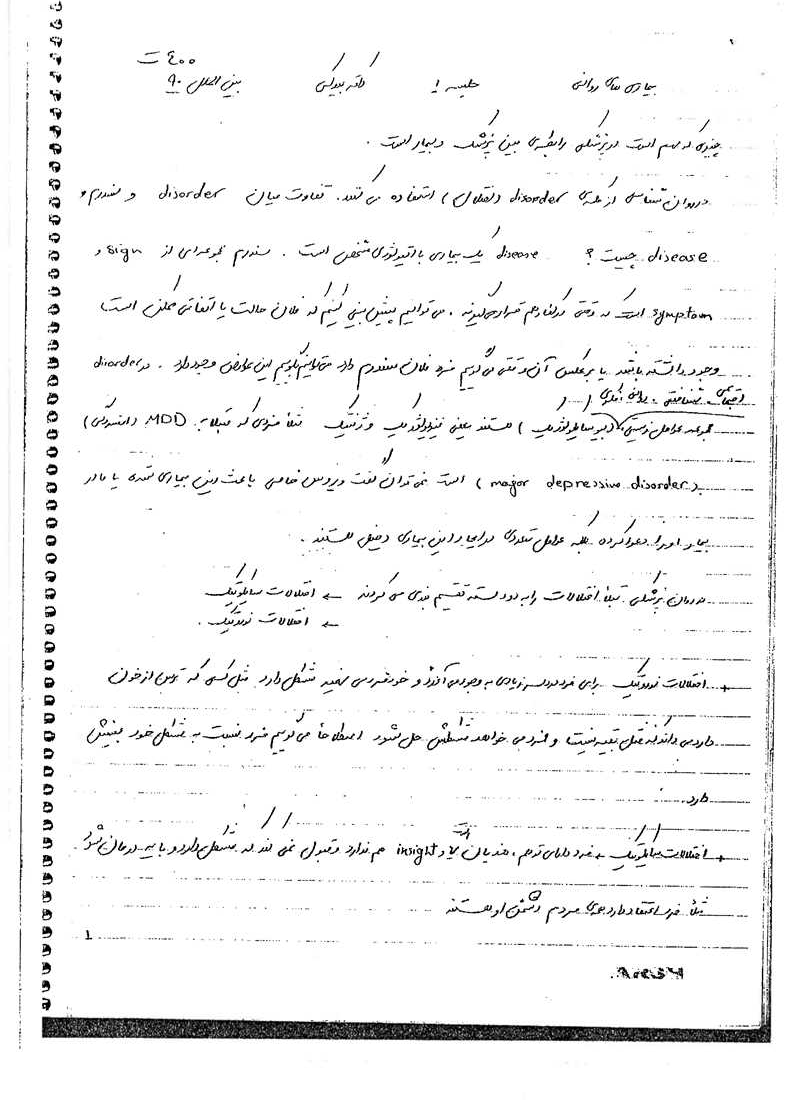 ۴۰۰ ت
بیماری های روانی جلسه ۱ بین الملل ۹۰
چیزی که مهم است در پزشکی رابطه ی بین پزشک و بیمار است .
در روان شناسی از کلمه ی disorder (اختلال) استفاده می کنند. تفاوت میان disorder و سندرم و
disease چیست ؟ disease یک بیماری با اتیولوژی مشخص است . سندرم مجموعه ای از sign و
symptom است که وقتی در کنار هم قرار می گیرند ، می توانیم پیش بینی کنیم که فلان حالت یا اتفاقی ممکن است
وجود داشته باشد یا برعکس آن وقتی می گوییم فرد فلان سندرم دارد می توانیم بگوییم این عوارض وجود دارد . در disorder
اجتماعی شناختی ، روانی
مجموعه عوامل زیستی، (بیوسایکولوژیک) هستند یعنی فیزیولوژیک و ژنتیک مثلاً فردی که مبتلا به MDD (افسردگی)
(major depressive disorder) است نمی توان گفت ویروس خاصی باعث این بیماری شده یا مادر
بیمار او را دعوا کرده بلکه عوامل متعددی در ایجاد این بیماری دخیل هستند .
در روان پزشکی قبلاً اختلالات را به دو دسته تقسیم بندی می کردند ← اختلالات سایکوتیک
← اختلالات نوروتیک .
+ اختلالات نوروتیک برای فرد دردسر زیادی به وجود می آورد و خود فرد می فهمد مشکل دارد مثل کسی که ترس از خون
دارد می داند که مثل بقیه نیست و فرد می خواهد مشکلش حل شود اصطلاحاً می گوییم فرد نسبت به مشکل خود بینش
دارد.
+ اختلالات سایکوتیک ← فرد دارای توهم ، هذیان است و insight هم ندارد و قبول نمی کند که مشکل دارد و باید درمان شود.
مثلاً فرد اعتقاد دارد همه ی مردم دشمن او هستند
۱